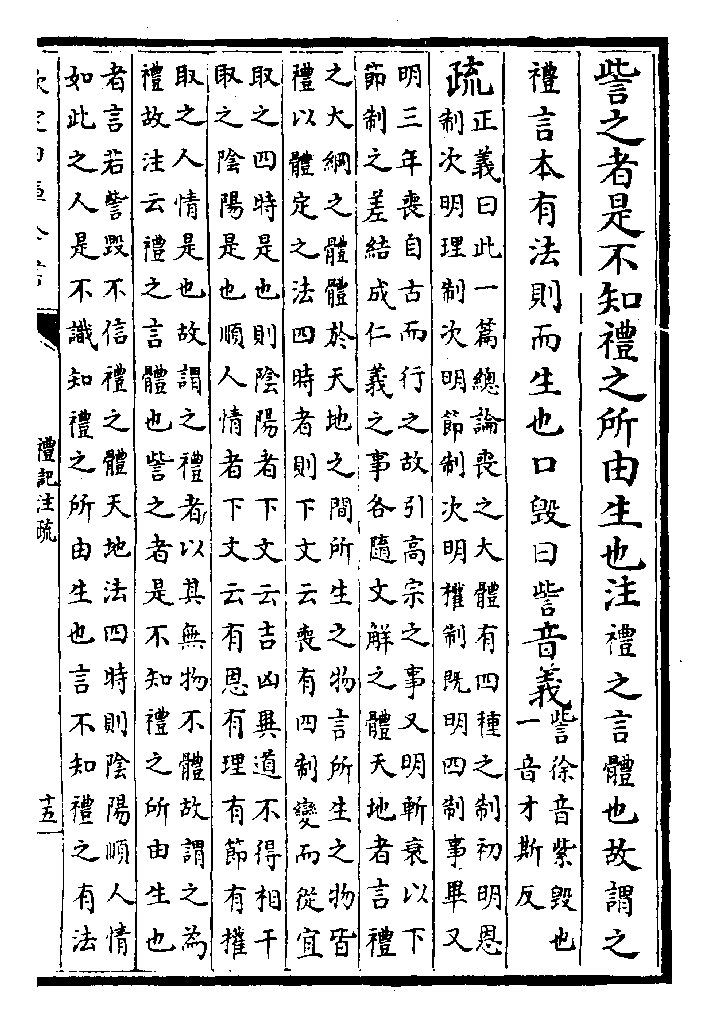 訾之者是不知禮之所由生也注禮之言體也故謂之
禮言本有法則而生也口毀曰訾音義訾徐音紫毀也
一音才斯反
疏正義曰此一篇總論喪之大體有四種之制初明恩
制次明理制次明節制次明權制既明四制事畢又
明三年喪自古而行之故引高宗之事又明斬衰以下
節制之差結成仁義之事各隨文解之體天地者言禮
之大綱之體體於天地之間所生之物言所生之物皆
禮以體定之法四時者則下文云喪有四制變而從宜
取之四時是也則陰陽者下文云吉凶異道不得相干
取之陰陽是也順人情者下文云有恩有理有節有權
取之人情是也故謂之禮者以其無物不體故謂之為
禮故注云禮之言體也訾之者是不知禮之所由生也
者言若訾毀不信禮之體天地法四時則陰陽順人情
如此之人是不識知禮之所由生也言不知禮之有法
禮記注疏
十五